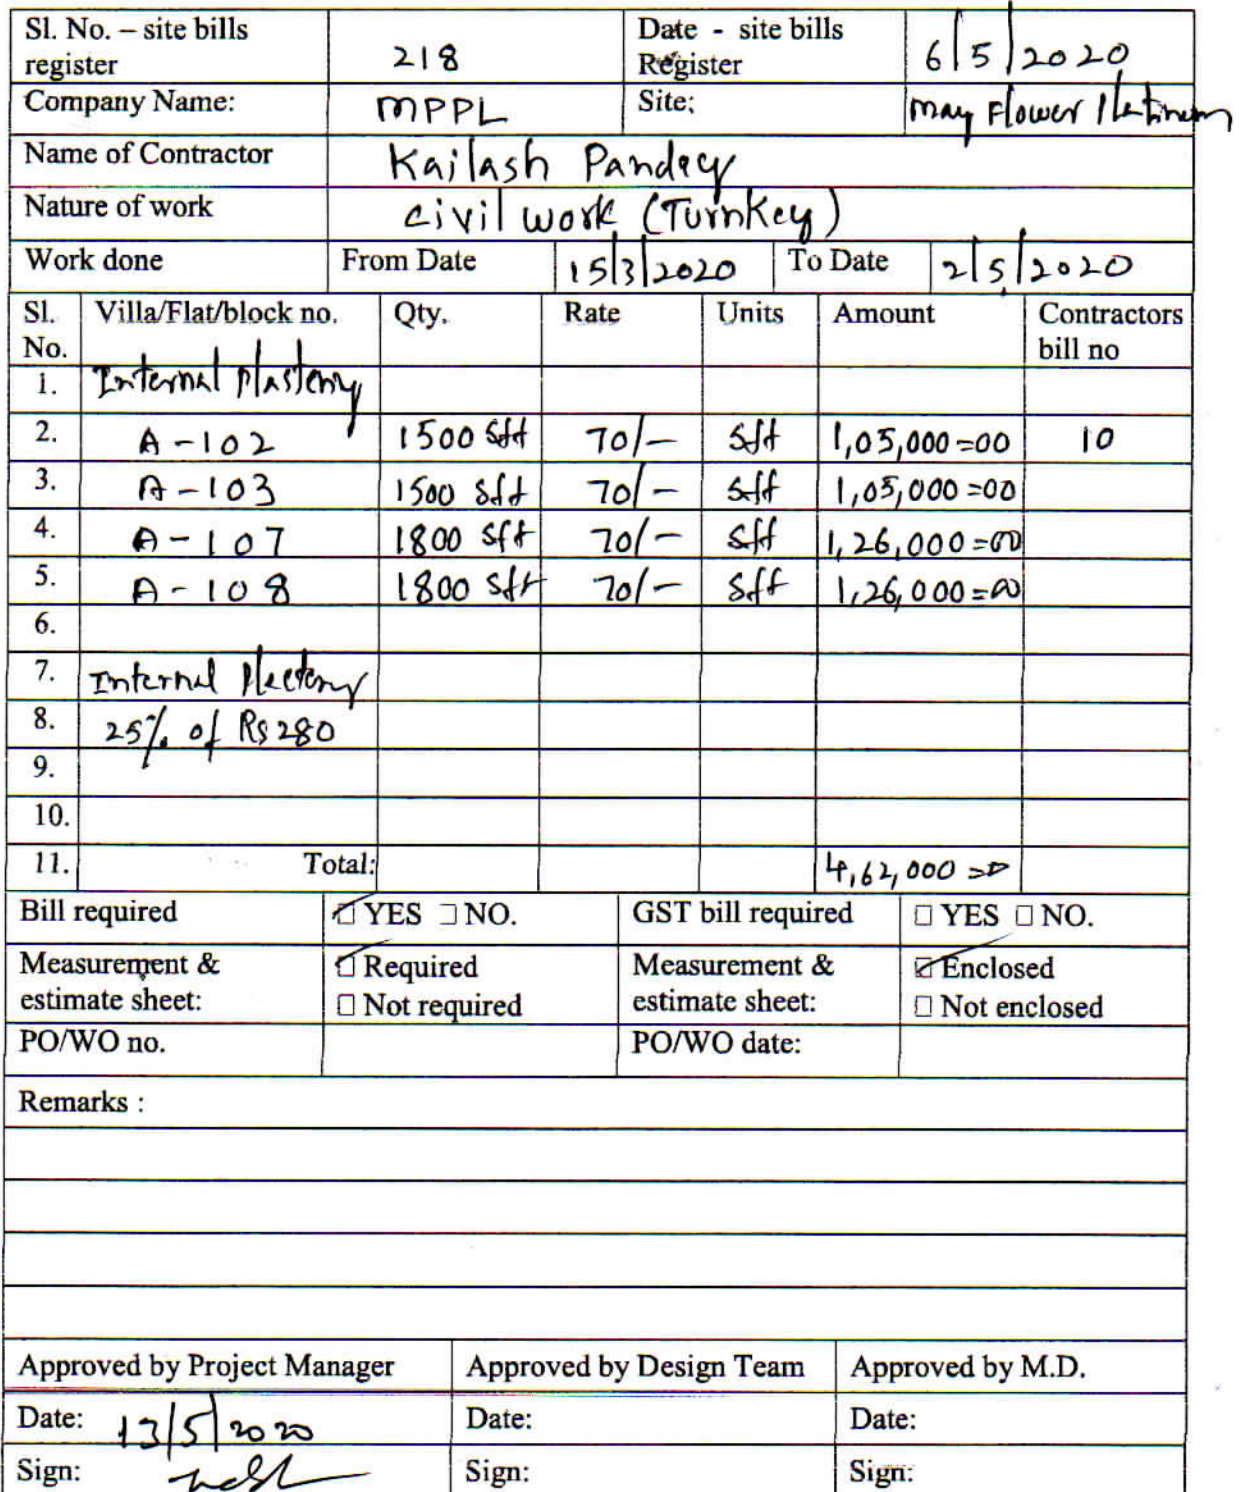 Sl. No. – site bills register 218 Date - site bills Register 6/5/2020
Company Name: MPPL Site: May Flower Platinum
Name of Contractor Kailash Pandey
Nature of work civil work (Turnkey)
Work done From Date 15/3/2020 To Date 2/5/2020
Sl. No. Villa/Flat/block no. Qty. Rate Units Amount Contractors bill no
1. Internal Plastering
2. A-102 1500 Sft 70/- Sft 1,05,000=00 10
3. A-103 1500 Sft 70/- Sft 1,05,000=00
4. A-107 1800 Sft 70/- Sft 1,26,000=00
5. A-108 1800 Sft 70/- Sft 1,26,000=00
6.
7. Internal
8. 25% of Rs 280
9.
10.
11. Total: 4,62,000=00
Bill required ☑ YES ☐ NO. GST bill required ☐ YES ☐ NO.
Measurement & estimate sheet: ☑ Required ☐ Not required Measurement & estimate sheet: ☑ Enclosed ☐ Not enclosed
PO/WO no. PO/WO date:
Remarks :
Approved by Project Manager Approved by Design Team Approved by M.D.
Date: 13/5/2020 Date: Date:
Sign: Sign: Sign: